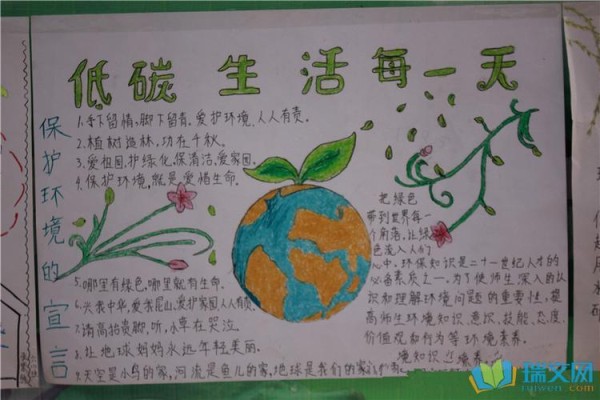 低碳生活每一天
保护环境的宣言
1.手下留情,脚下留青,爱护环境,人人有责。
2.植树造林,功在千秋。
3.爱祖国,护绿化,保清洁,爱家园。
4.保护环境,就是爱惜生命。
5.哪里有绿色,哪里就有生命。
6.兴我中华,爱我尼山,爱护家园人人有责。
7.请高抬贵脚,听,小草在哭泣
8.让地球妈妈永远年轻美丽。
9.天空是小鸟的家,河流是鱼儿的家,地球是我们的家
把绿色
带到世界每一
个角落,让绿
色流入人们
心中,环保知识是二十一世纪人才的
必备素质之一,为了使师生深入的认
识和理解环境问题的重要性,提
高师生环境知识、意识、技能、态度、
价值观和行为等环境素养。
境知识
瑞文网
ruiwen.com